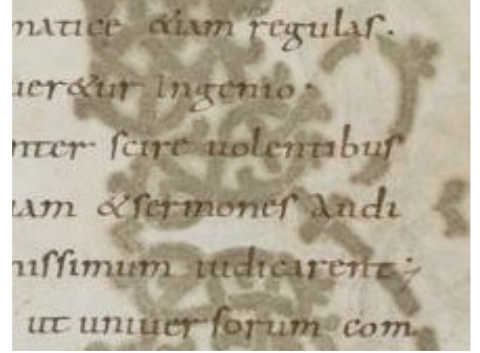 matice &iam regulas.
uer&ur ingenio.
nter scire uolentibus
iam & sermones audi
nissimum iudicarent;
ut uniuersorum com